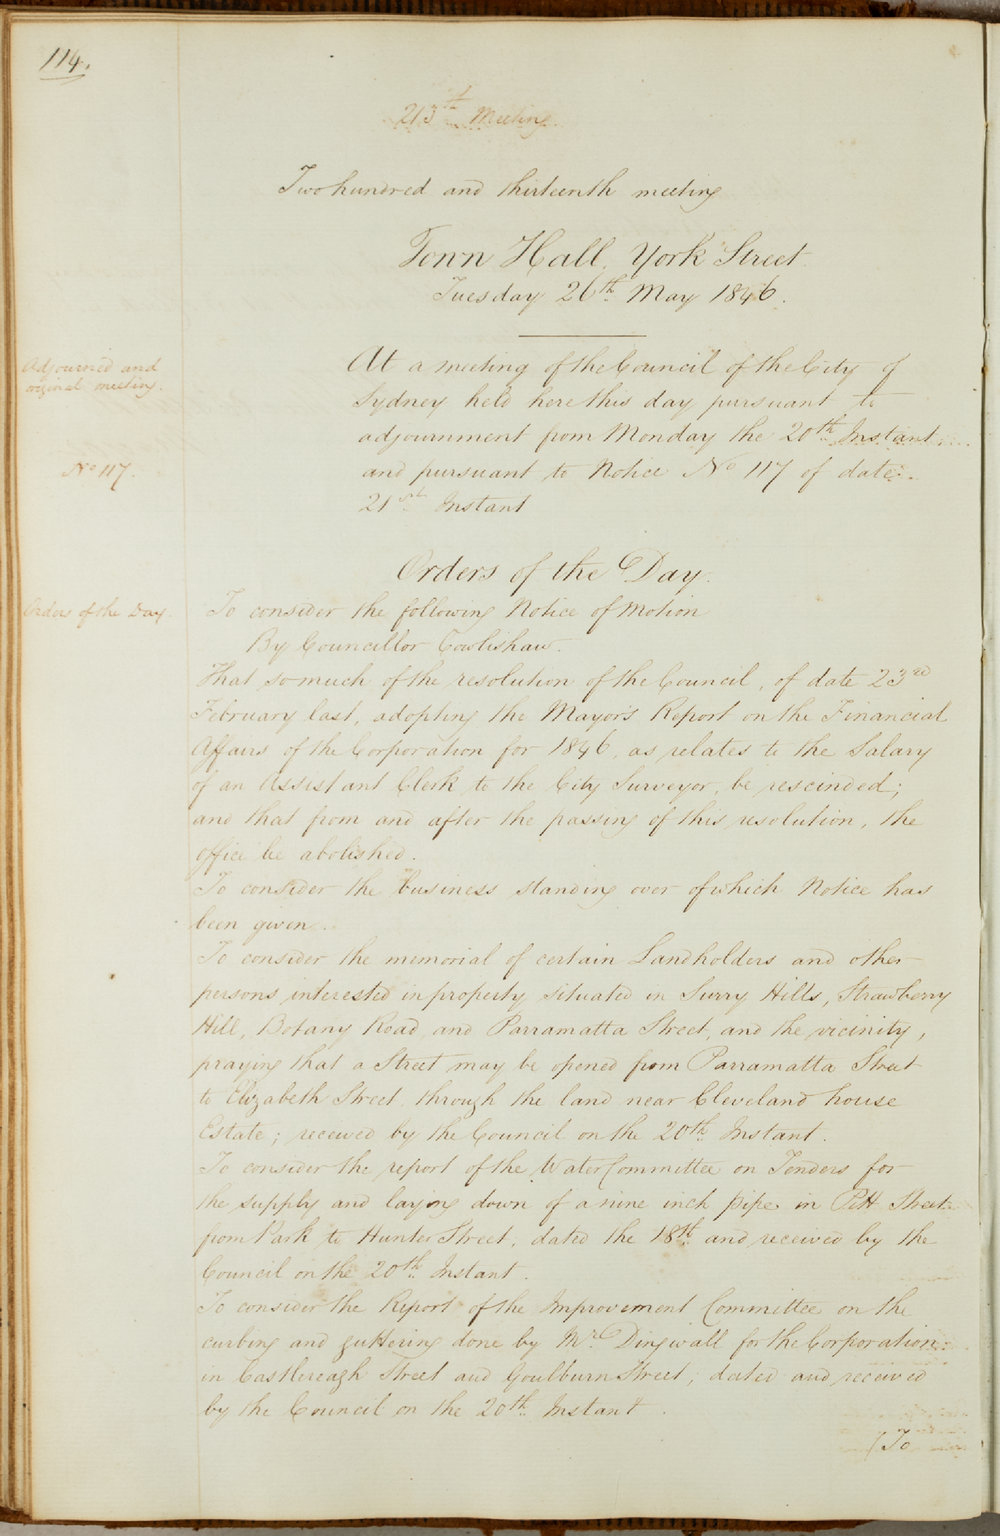 114.
213th Meeting.
Two hundred and thirteenth meeting
Town Hall, York Street
Tuesday 26th May 1846.
Adjourned and
original meeting.
At a meeting of the Council of the City of
Sydney held here this day pursuant to
adjournment from Monday the 20th Instant
No 117.
and pursuant to Notice No 117 of date
21st Instant
Orders of the Day.
Orders of the Day.
To consider the following Notice of Motion
By Councillor Cowlishaw.
That so much of the resolution of the Council, of date 23rd
February last, adopting the Mayor's Report on the Financial
Affairs of the Corporation for 1846, as relates to the Salary
of an Assistant Clerk to the City Surveyor, be rescinded;
and that from and after the passing of this resolution, the
office be abolished.
To consider the business standing over of which Notice has
been given.
To consider the memorial of certain Landholders and other
persons interested in property situated in Surry Hills, Strawberry
Hill, Botany Road, and Parramatta Street, and the vicinity,
praying that a Street may be opened from Parramatta Street
to Elizabeth Street through the land near Cleveland house
Estate; received by the Council on the 20th Instant.
To consider the report of the Water Committee on Tenders for
the supply and laying down of a nine inch pipe in Pitt Street
from Park to Hunter Street, dated the 18th and received by the
Council on the 20th Instant.
To consider the Report of the Improvement Committee on the
curbing and guttering done by Mr Dingwall for the Corporation
in Castlereagh Street and Goulburn Street; dated and received
by the Council on the 20th Instant.
(To